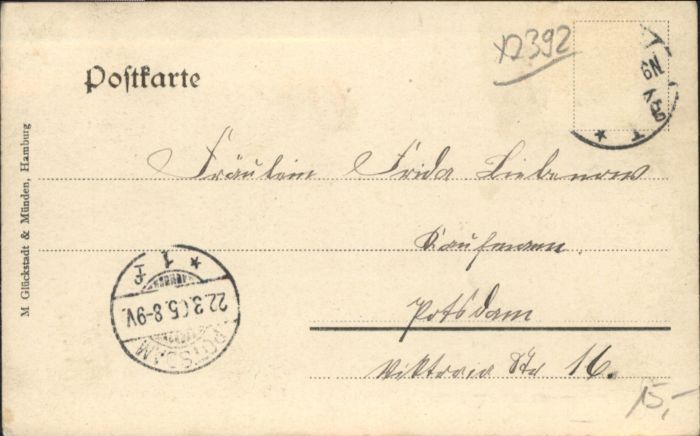 x2392
Postkarte
6N
M Glückstadt & Münden, Hamburg
Fräulein Frida Liebenow
Kaufmann.
Potsdam
Viktoria Str 16.
POTSDAM
22.3.05.8-9V.
* 1 P
15,-